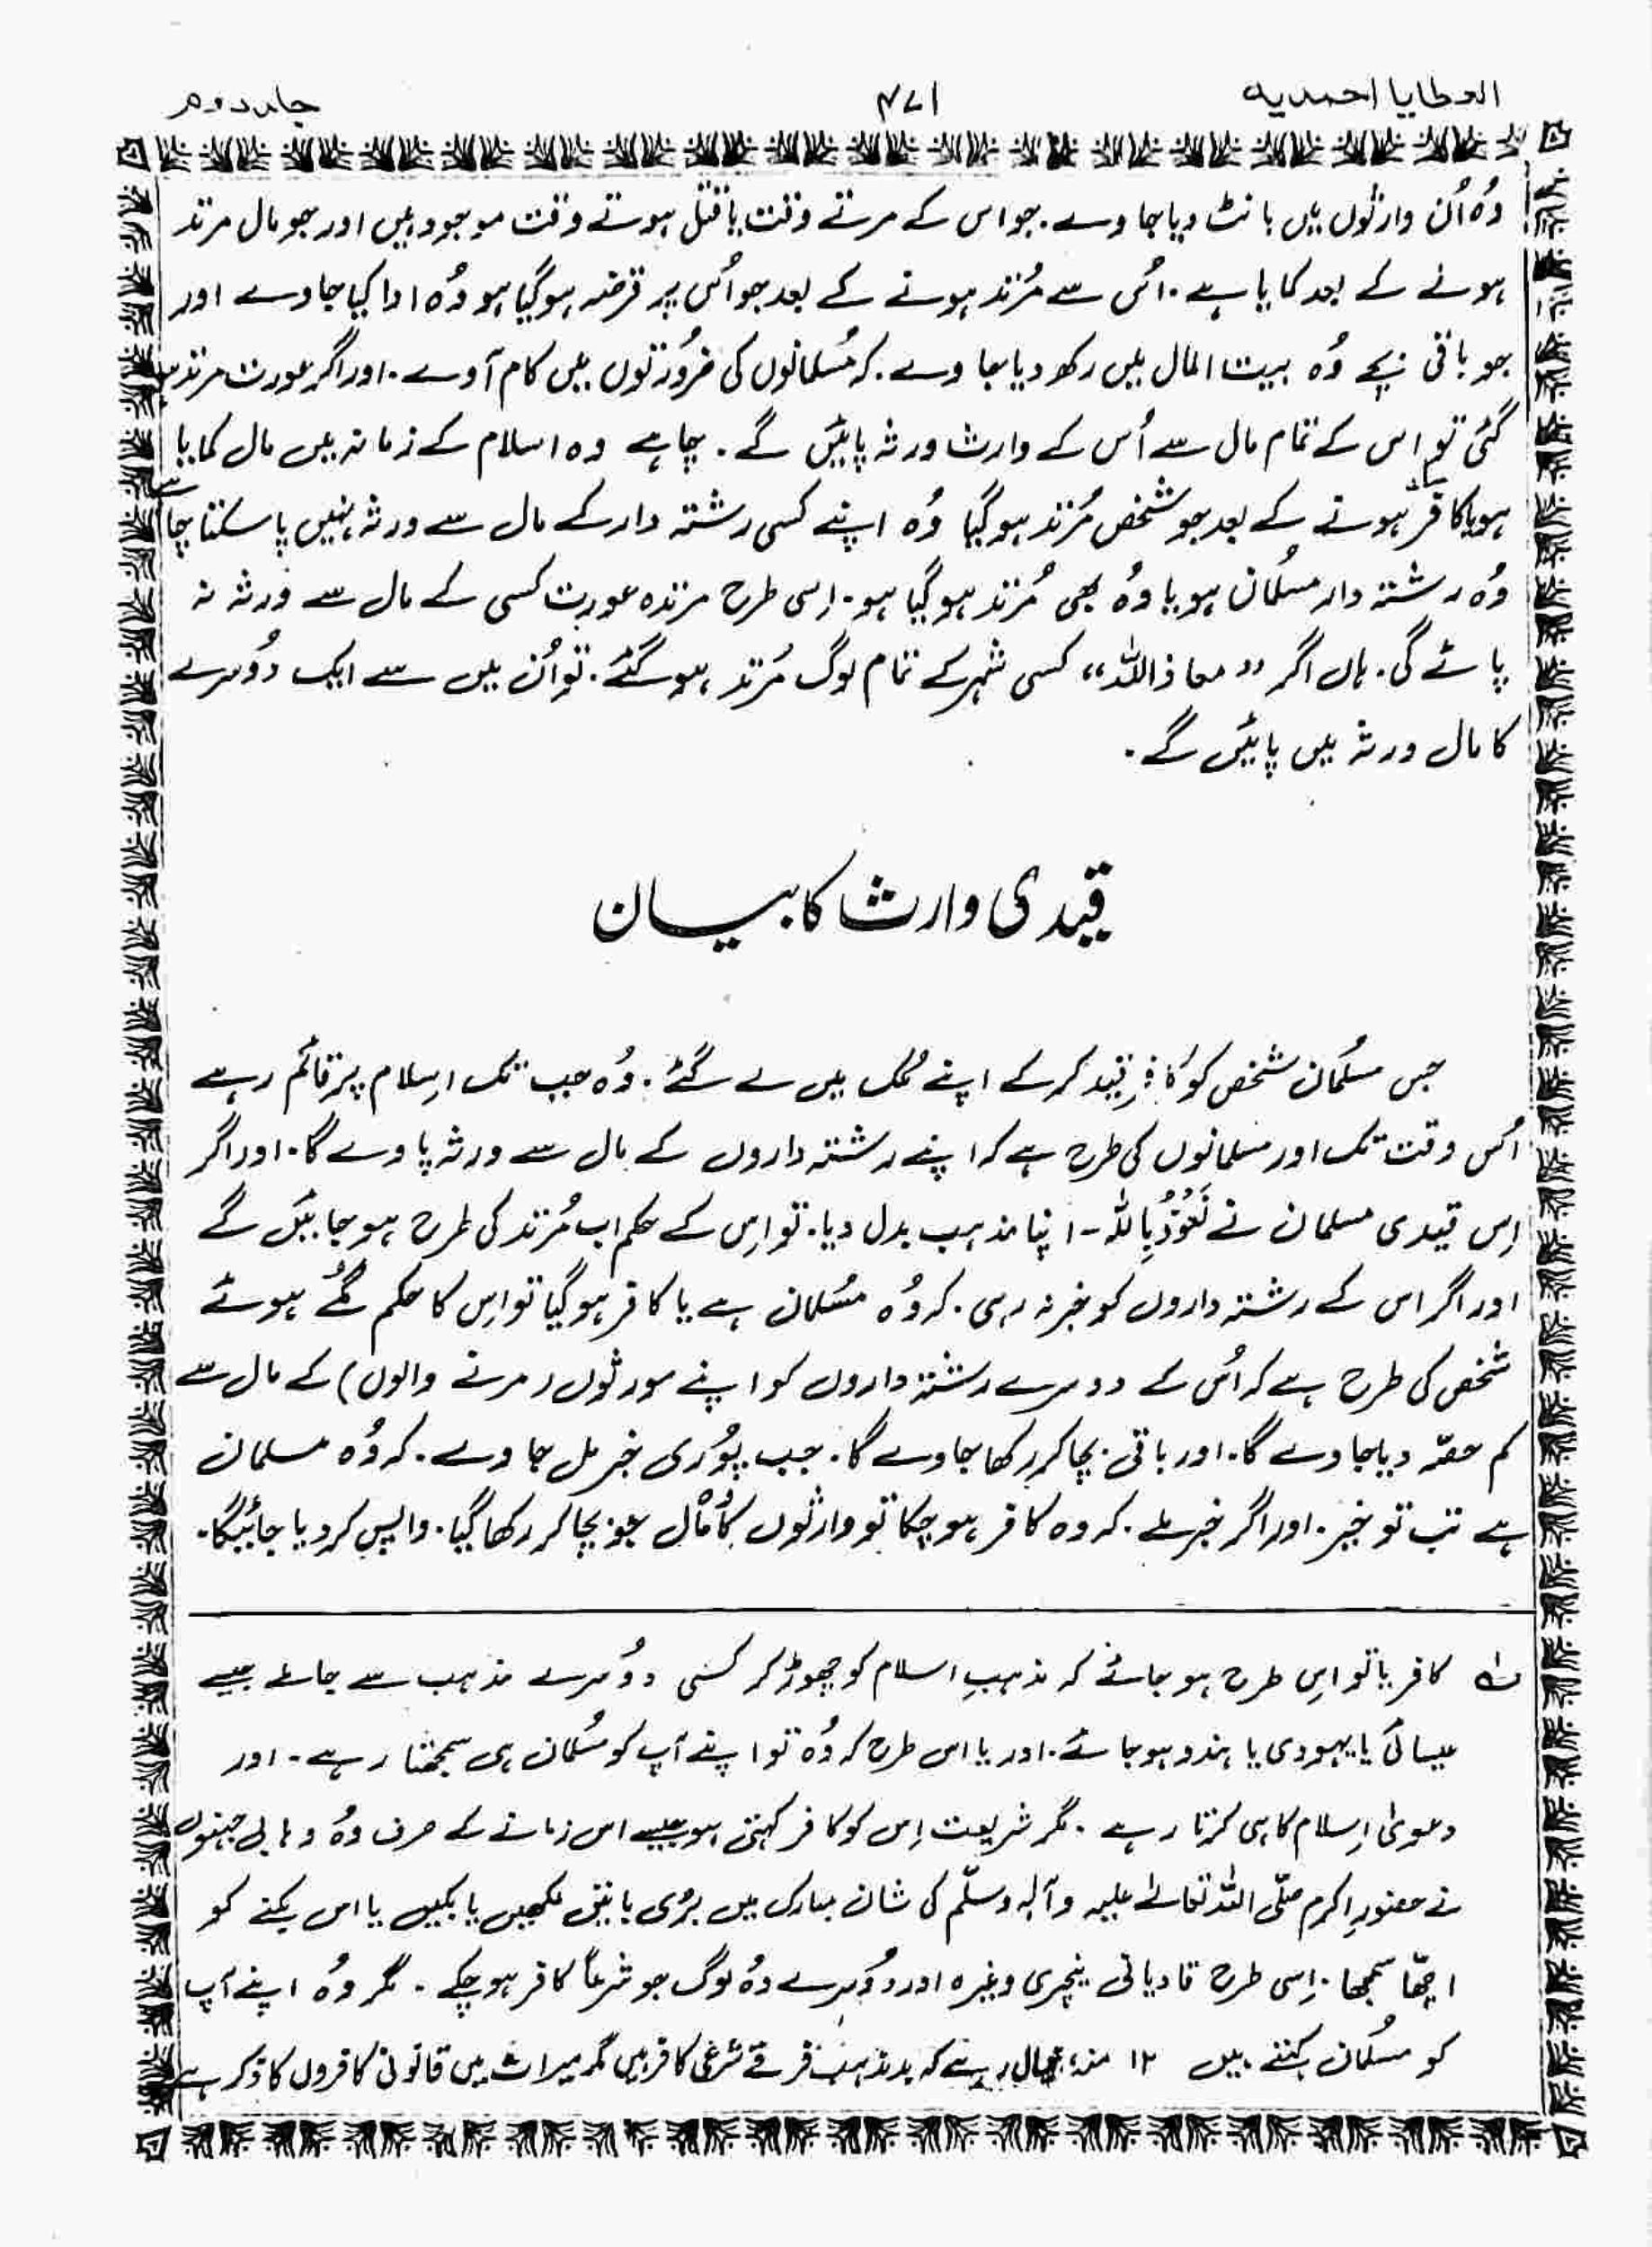 العطایا احمدیه
۴۷۱
جلد دوم
وُہ اُن وارثوں میں بانٹ دیا جاوے۔ جو اس کے مرتے وقت یا قتل ہوتے وقت موجود ہیں اور جو مال مرتد
ہونے کے بعد کمایا ہے۔ اُس سے مُرتد ہونے کے بعد جو اُس پر قرضہ ہو گیا ہو وُہ ادا کیا جاوے اور
جو باقی بچے وُہ بیت المال میں رکھ دیا جاوے۔ کہ مُسلمانوں کی ضرُورتوں میں کام آوے۔ اور اگر عورت مرتد ہو
گئی تو اس کے تمام مال سے اُس کے وارث ورثہ پائیں گے۔ چاہے وہ اسلام کے زمانہ میں مال کمایا
ہو یا کافر ہونے کے بعد جو شخص مُرتد ہو گیا وُہ اپنے کسی رشتہ دار کے مال سے ورثہ نہیں پا سکتا چاہے
وُہ رشتہ دار مسلُمان ہو یا وُہ بھی مُرتد ہو گیا ہو۔ اِسی طرح مرتدہ عورت کسی کے مال سے ورثہ نہ
پائے گی۔ ہاں اگر ”معاذ اللہ“ کسی شہر کے تمام لوگ مُرتد ہو گئے۔ تو اُن میں سے ایک دوُسرے
کا مال ورثہ میں پائیں گے۔
قیدی وارث کا بیان
جس مسلُمان شخص کو کافر قید کر کے اپنے مُلک میں لے گئے۔ وُہ جب تک اِسلام پر قائم رہے
اُس وقت تک اور مسلمانوں کی طرح ہے کہ اپنے رشتہ داروں کے مال سے ورثہ پاوے گا۔ اور اگر
اِس قیدی مسلمان نے نَعُوْذُ بِاللہ۔ اپنا مذہب بدل دیا۔ تو اِس کے حکم اب مُرتد کی طرح ہو جائیں گے
اور اگر اس کے رشتہ داروں کو خبر نہ رہی۔ کہ وُہ مسُلمان ہے یا کافر ہو گیا تو اِس کا حکم گُمے ہوئے
شخص کی طرح ہے کہ اُس کے دوسرے رشتہ داروں کو اپنے مورثوں (مرنے والوں) کے مال سے
کم حصّہ دیا جاوے گا۔ اور باقی بچا کر رکھا جاوے گا۔ جب پُوری خبر مل جاوے۔ کہ وُہ مسلمان
ہے تب تو خیر۔ اور اگر خبر ملے۔ کہ وہ کافر ہو چکا تو وارثوں کا مال جو بچا کر رکھا گیا۔ واپس کر دیا جائیگا۔
کافر یا تو اِس طرح ہو جائے کہ مذہبِ اسلام کو چھوڑ کر کسی دوُسرے مذہب سے جا ملے جیسے
عیسائی یا یہودی یا ہندو ہو جائے۔ اور یا اس طرح کہ وُہ تو اپنے آپ کو مسُلمان ہی سمجھتا رہے۔ اور
دعوٰی اِسلام کا ہی کرتا رہے۔ مگر شریعت اِس کو کافر کہتی ہو جیسے اس زمانے کے صرف وُہ وہابی جنہوں
نے حضورِ اکرم صلّی اللہ تعالےٰ علیہ وآلہ وسلّم کی شان مبارک میں برُی باتیں لکھیں یا بکیں یا اس بکنے کو
اچھّا سمجھا۔ اِسی طرح قادیانی نیچری وغیرہ اور دوُسرے وُہ لوگ جو شرعاً کافر ہو چکے۔ مگر وُہ اپنے آپ
کو مسُلمان کہتے ہیں ۱۲ منہ خیال رہے کہ بد مذہب فرقے شرعی کافر ہیں مگر میراث میں قانونی کافروں کا ذکر ہے